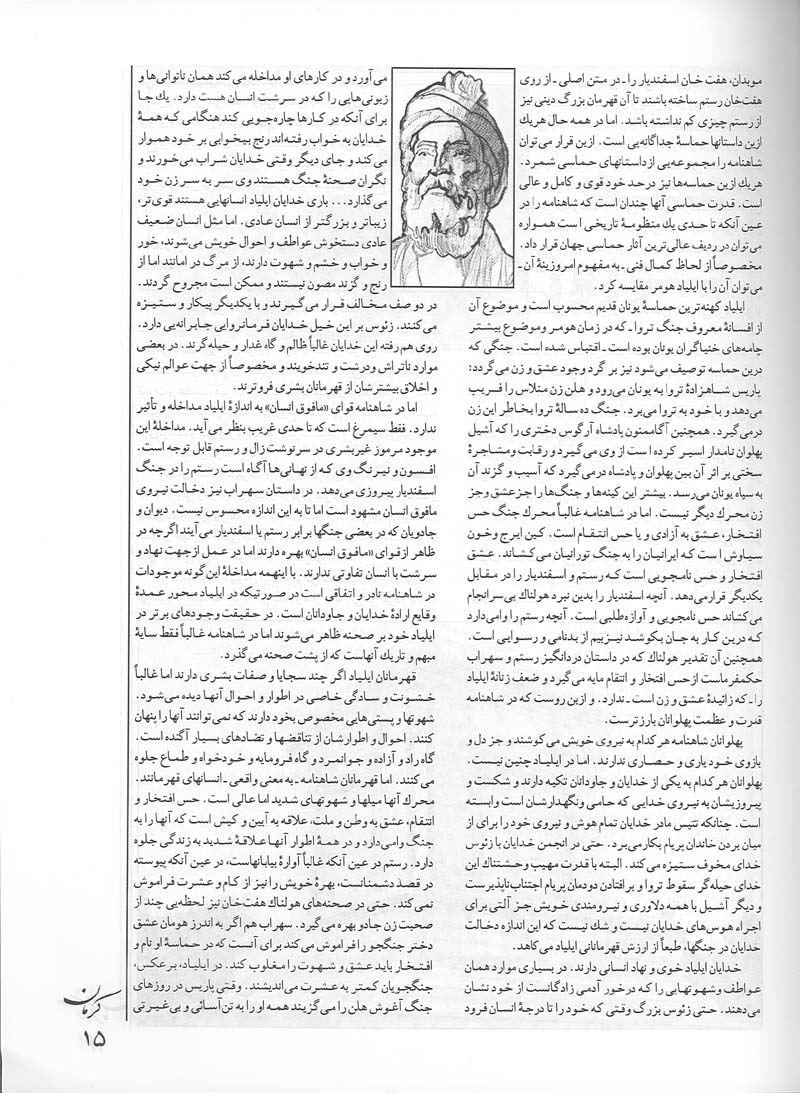 موبدان، هفت خان اسفندیار را ـ در متن اصلی ـ از روی
هفت‌خان رستم ساخته باشند تا آن قهرمان بزرگ دینی نیز
از رستم چیزی کم نداشته باشد. اما در همه حال هریك
ازین داستانها حماسهٔ جداگانه‌یی است. ازین قرار می‌توان
شاهنامه را مجموعه‌یی از داستانهای حماسی شمرد.
هریك ازین حماسه‌ها نیز در حد خود قوی و کامل و عالی
است. قدرت حماسی آنها چندان است که شاهنامه را در
عین آنکه تا حدی یك منظومهٔ تاریخی است همواره
می‌توان در ردیف عالی‌ترین آثار حماسی جهان قرار داد.
مخصوصاً از لحاظ کمال فنی ـ به مفهوم امروزینهٔ آن ـ
می‌توان آن را با ایلیاد هومر مقایسه کرد.
ایلیاد کهنه‌ترین حماسهٔ یونان قدیم محسوب است و موضوع آن
از افسانهٔ معروف جنگ تروا ـ که در زمان هومر وموضوع بیشتر
چامه‌های خنیاگران یونان بوده است ـ اقتباس شده است. جنگی که
درین حماسه توصیف می‌شود نیز بر گرد وجود عشق و زن می‌گردد:
پاریس شاهزادهٔ تروا به یونان می‌رود و هلن زن منلاس را فریب
می‌دهد و با خود به تروا می‌برد. جنگ ده سالهٔ تروا بخاطر این زن
درمی‌گیرد. همچنین آگاممنون پادشاه آرگوس دختری را که آشیل
پهلوان نامدار اسیر کرده است از وی می‌گیرد و رقابت ومشاجرهٔ
سختی بر اثر آن بین پهلوان و پادشاه درمی‌گیرد که آسیب و گزند آن
به سپاه یونان می‌رسد. بیشتر این کینه‌ها و جنگ‌ها را جز عشق وجز
زن محرك دیگر نیست. اما در شاهنامه غالباً محرك جنگ حس
افتخار، عشق به آزادی و یا حس انتقام است. کین ایرج وخون
سیاوش است که ایرانیان را به جنگ تورانیان می‌کشاند. عشق
افتخار و حس نامجویی است که رستم و اسفندیار را در مقابل
یکدیگر قرارمی‌دهد. آنچه اسفندیار را بدین نبرد هولناك بی‌سرانجام
می‌کشاند حس نامجویی و آوازه‌طلبی است. آنچه رستم را وامی‌دارد
که درین کار به جان بکوشد نیزبیم از بدنامی و رسوایی است.
همچنین آن تقدیر هولناك که در داستان دردانگیز رستم و سهراب
حکمفرماست از حس افتخار و انتقام مایه می‌گیرد و ضعف زنانهٔ ایلیاد
را ـ که زائیدهٔ عشق و زن است ـ ندارد. و ازین روست که در شاهنامه
قدرت و عظمت پهلوانان بارزترست.
پهلوانان شاهنامه هر کدام به نیروی خویش می‌کوشند و جز دل و
بازوی خود یاری و حصاری ندارند. اما در ایلیاد چنین نیست.
پهلوانان هر کدام به یکی از خدایان و جاودانان تکیه دارند و شکست و
پیروزیشان به نیروی خدایی که حامی ونگهدارشان است وابسته
است. چنانکه تتیس مادر خدایان تمام هوش و نیروی خود را برای از
میان بردن خاندان پریام بکارمی‌برد. حتی در انجمن خدایان با زئوس
خدای مخوف ستیزه می‌کند. البته با قدرت مهیب وحشتناك این
خدای حیله‌گر سقوط تروا و برافتادن دودمان پریام اجتناب ناپذیرست
و دیگر آشیل با همه دلاوری و نیرومندی خویش جز آلتی برای
اجراء هوس‌های خدایان نیست و شك نیست که این اندازه دخالت
خدایان در جنگها، طبعاً از ارزش قهرمانانی ایلیاد می‌کاهد.
خدایان ایلیاد خوی و نهاد انسانی دارند. در بسیاری موارد همان
عواطف وشهوتهایی را که در خور آدمی زادگانست از خود نشان
می‌دهند. حتی زئوس بزرگ وقتی که خود را تا درجهٔ انسان فرود
می‌آورد و در کارهای او مداخله می‌کند همان ناتوانی‌ها و
زبونی‌هایی را که در سرشت انسان هست دارد. یك جا
برای آنکه در کارها چاره‌جویی کند هنگامی که همهٔ
خدایان به خواب رفته‌اند رنج بیخوابی بر خود هموار
می‌کند و جای دیگر وقتی خدایان شراب می‌خورند و
نگران صحنهٔ جنگ هستند وی سر به سر زن خود
می‌گذارد... باری خدایان ایلیاد انسانهایی هستند قوی‌تر،
زیباتر و بزرگتر از انسان عادی. اما مثل انسان ضعیف
عادی دستخوش عواطف و احوال خویش می‌شوند، خور
و خواب و خشم و شهوت دارند، از مرگ در امانند اما از
رنج و گزند مصون نیستند و ممکن است مجروح گردند.
در دو صف مخالف قرار می‌گیرند و با یکدیگر پیکار و ستیزه
می‌کنند. زئوس بر این خیل خدایان فرمانروایی جابرانه‌یی دارد.
روی هم رفته این خدایان غالباً ظالم و گاه غدار و حیله‌گرند. در بعضی
موارد ناتراش ودرشت و تندخویند و مخصوصاً از جهت عوالم نیکی
و اخلاق بیشترشان از قهرمانان بشری فروترند.
اما در شاهنامه قوای «مافوق انسان» به اندازهٔ ایلیاد مداخله و تأثیر
ندارد. فقط سیمرغ است که تا حدی غریب بنظر می‌آید. مداخلهٔ این
موجود مرموز غیربشری در سرنوشت زال و رستم قابل توجه است.
افسون و نیرنگ وی که از نهانی‌ها آگاه است رستم را در جنگ
اسفندیار پیروزی می‌دهد. در داستان سهراب نیز دخالت نیروی
مافوق انسان مشهود است اما تا به این اندازه محسوس نیست. دیوان و
جادویان که در بعضی جنگها برابر رستم یا اسفندیار می‌آیند اگرچه در
ظاهر ازقوای «مافوق انسان» بهره دارند اما در عمل ازجهت نهاد و
سرشت با انسان تفاوتی ندارند. با اینهمه مداخلهٔ این گونه موجودات
در شاهنامه نادر و اتفاقی است در صورتیکه در ایلیاد محور عمدهٔ
وقایع ارادهٔ خدایان و جاودانان است. در حقیقت وجودهای برتر در
ایلیاد خود بر صحنه ظاهر می‌شوند اما در شاهنامه غالباً فقط سایهٔ
مبهم و تاریك آنهاست که از پشت صحنه می‌گذرد.
قهرمانان ایلیاد اگر چند سجایا و صفات بشری دارند اما غالباً
خشونت و سادگی خاصی در اطوار و احوال آنها دیده می‌شود.
شهوتها و پستی‌هایی مخصوص بخود دارند که نمی‌توانند آنها را پنهان
کنند. احوال و اطوارشان از تناقضها و تضادهای بسیار آگنده است.
گاه راد و آزاده و جوانمرد و گاه فرومایه و خودخواه و طماع جلوه
می کنند. اما قهرمانان شاهنامه ـ به معنی واقعی ـ انسانهای قهرمانند.
محرك آنها میلها و شهوتهای شدید اما عالی است. حس افتخار و
انتقام، عشق به وطن و ملت، علاقه به آیین و کیش است که آنها را به
جنگ وامی‌دارد و در همهٔ اطوار آنها علاقهٔ شدید به زندگی جلوه
دارد. رستم در عین آنکه غالباً آوارهٔ بیابانهاست، در عین آنکه پیوسته
در قصد دشمنانست، بهرهٔ خویش را نیز از کام و عشرت فراموش
نمی‌کند. حتی در صحنه‌های هولناك هفت‌خان نیز لحظه‌یی چند از
صحبت زن جادو بهره می‌گیرد. سهراب هم اگر به اندرز هومان عشق
دختر جنگجو را فراموش می‌کند برای آنست که در حماسهٔ او نام و
افتخار باید عشق و شهوت را مغلوب کند. در ایلیاد، برعکس،
جنگجویان کمتر به عشرت می‌اندیشند. وقتی پاریس در روزهای
جنگ آغوش هلن را می‌گزیند همه او را به تن‌آسائی و بی‌غیرتی
کرمان
۱۵